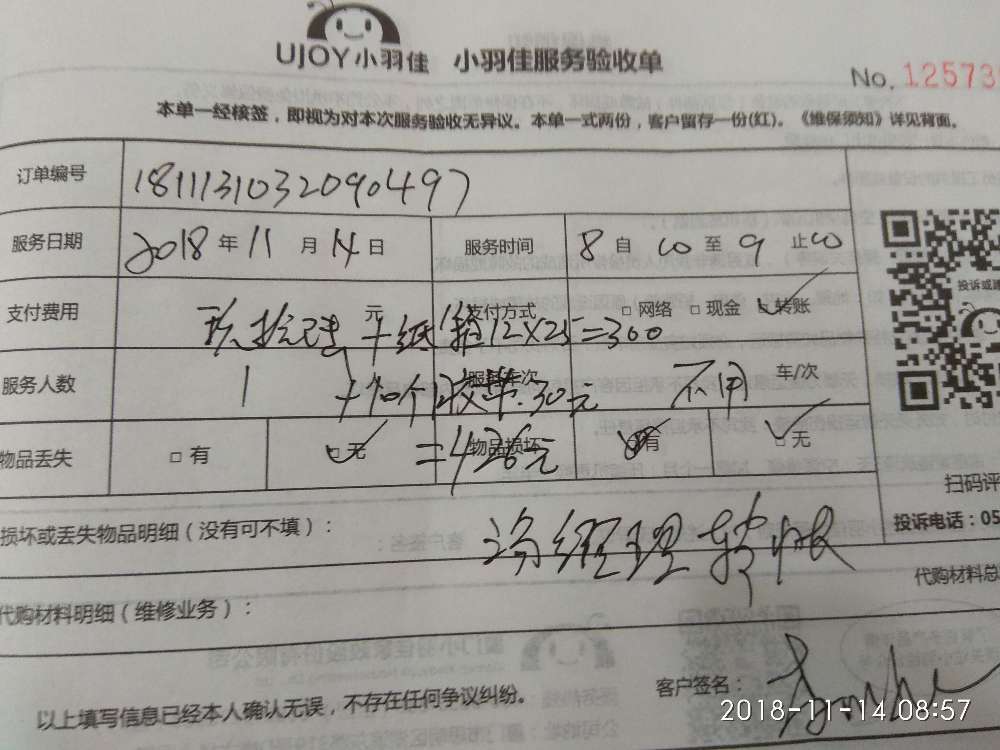 UJOY小羽佳 小羽佳服务验收单
No. 12573
本单一经核签，即视为对本次服务验收无异议。本单一式两份，客户留存一份(红)。《维保须知》详见背面。
订单编号 1811131032090497
服务日期 2018 年 11 月 14 日 服务时间 8 自 00 至 9 止 00
支付费用 玖拾陆 元 支付方式 □ 网络 □ 现金 ☑ 转账
+纸箱12X25=300
服务人数 1 服务车次 不用 车/次
+10个胶带.30元
物品丢失 □ 有 ☑ 无 物品损坏 有 ☑ 无
=426元
扫码评
损坏或丢失物品明细（没有可不填）：
投诉电话：05
经理转账
代购材料总
代购材料明细（维修业务）：
投诉或
客户签名：
以上填写信息已经本人确认无误，不存在任何争议纠纷。
2018-11-14 08:57